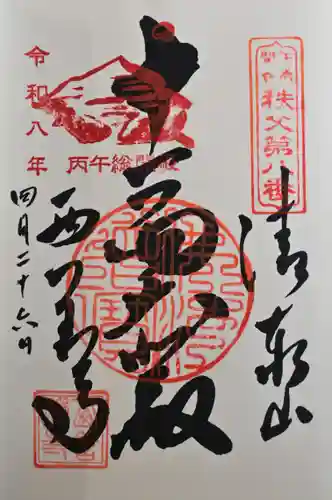 秩父第八番
清泰山
十一面大悲殿
西善寺
令和八年
丙午総開帳
四月二十六日